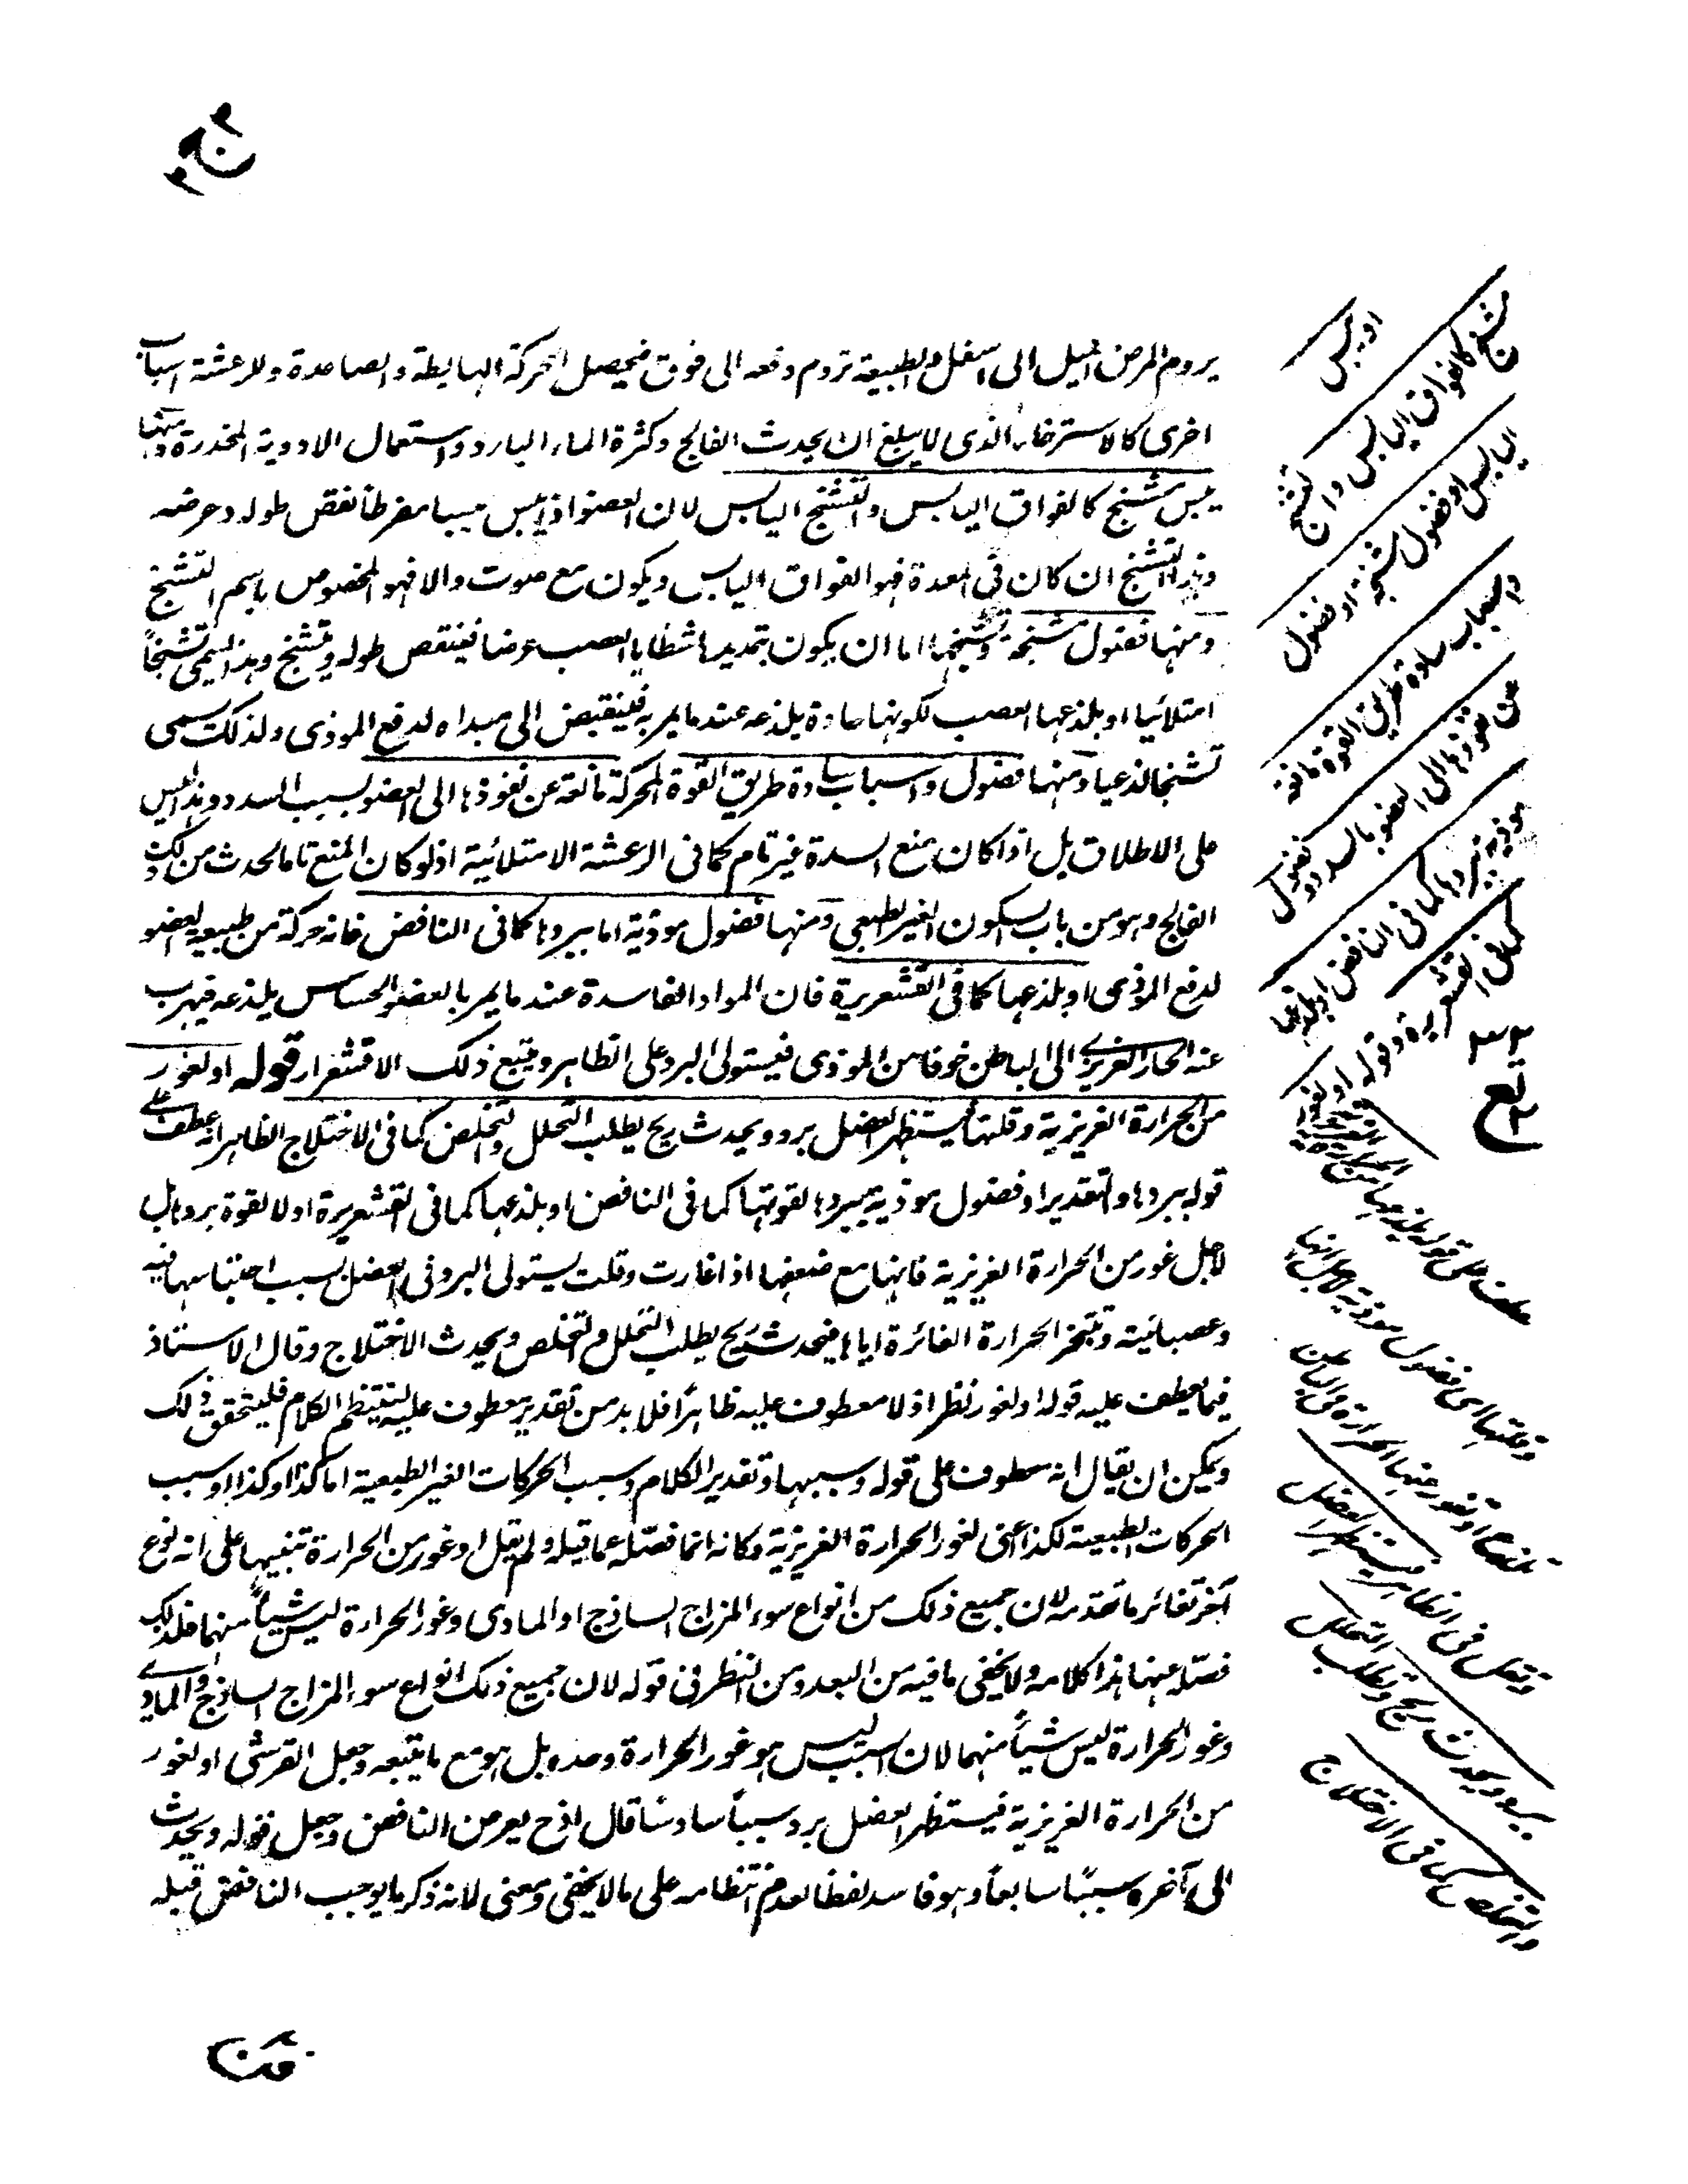 يروم المرض الميل الى اسفل والطبيعة تروم دفعه الى فوق فيحصل الحركة الهابطة والصاعدة وللرعشة اسباب
اخرى كالاسترخاء الذى لا يبلغ ان يحدث الفالج وكثرة الماء البارد واستعمال الادوية المخدرة ومنها
يبس مشنج كالفواق اليابس والتشنج اليابس لان العضو اذا يبس يبسا مفرطا نقص طوله وعرضه
وهذا التشنج ان كان فى المعدة فهو الفواق اليابس ويكون مع صوت والا فهو المخصوص باسم التشنج
ومنها فضول مشنجة وتشنجها اما ان يكون بتمديدها شظايا العصب عرضا فينتقص طوله ويتشنج وهذا يسمى تشنجاً
امتلائيا او بلذعها العصب لكونها حادة يلذعه عندما يمر به فينقبض الى مبداه لدفع الموذى ولذلك يسمى
تشنجا لذعيا ومنها فضول واسباب سادة طريق القوة المحركة مانعة عن نفوذها الى العضو بسبب السدد وهذا ليس
على الاطلاق بل اذا كان منع السدة غير تام كما فى الرعشة الامتلائية اذ لو كان المنع تاما لحدث من ذلك
الفالج وهو من باب السكون الغير الطبيعى ومنها فضول موذية اما ببردها كما فى النافض فانه حركة من طبيعة العضو
لدفع الموذى او بلذعها كما فى القشعريرة فان المواد الفاسدة عندما يمر بالعضو الحساس يلذعه فيهرب
عنه الحار الغريزى الى الباطن خوفا من الموذى فيستولى البرد على الظاهر ويتبع ذلك الاقشعرار قوله او لغور
من الحرارة الغريزية وقلتها فيستظهر الفضل برد ويحدث ريح يطلب التحلل والتخلص كما فى الاختلاج الظاهر انه عطف على
قوله ببردها والتقدير او فضول موذية ببردها لقوتها كما فى النافض او بلذعها كما فى القشعريرة او لا لقوة بردها بل
لاجل غور من الحرارة الغريزية فانها مع ضعفها اذا غارت وقلت يستولى البرد فى الفضل بسبب احتباسها فيه
وعصبانيته وتبخر الحرارة الغائرة اياها فيحدث ريح يطلب التحلل والتخلص ويحدث الاختلاج وقال الاستاذ
فيما يعطف عليه قوله او لغور نظر اذ لا معطوف عليه ظاهراً فلا بد من تقدير معطوف عليه لينتظم الكلام فليتحقق ذلك
ويمكن ان يقال انه معطوف على قوله وسببها وتقدير الكلام وسبب الحركات الغير الطبيعية اما كذا وكذا او سبب
الحركات الطبيعية لكذا اعنى لغور الحرارة الغريزية وكانه انما فصّله عما قبله ولم يقل او غور من الحرارة تنبيها على انه نوع
آخر تغائر ما تقدمه لان جميع ذلك من انواع سوء المزاج الساذج او المادى وغور الحرارة ليس شيئاً منهما فلذلك
فصّله عنها هذا كلامه ولا يخفى ما فيه من البعد ومن النظر فى قوله لان جميع ذلك انواع سوء المزاج الساذج والمادى
وغور الحرارة ليس شيئاً منهما لان السبب ليس هو غور الحرارة وحده بل هو مع ما يتبعه وجعل القرشى او لغور
من الحرارة الغريزية فيستظهر الفضل برد سبباً سادسا قال اذ ح يعرض النافض وجعل قوله ويحدث
الى آخره سبباً سابعاً وهو فاسد لفظا لعدم انتظامه على ما لا يخفى ومعنى لانه ذكر ما يوجب النافض قبله
او يبس
مشنج كالفواق اليابس والتشنج
اليابس او فضول مشنجة او فضول
واسباب سادة طريق القوة مانعة
عن نفوذها الى العضو بالسدد او فضول
موذية ببردها كما فى النافض او بلذعها
كما فى القشعريرة وقوله او لغور
من الحرارة الغريزية
عطف على قوله بلذعها
وقلتها اى فضول موذية لاجل انها
فيستظهر الفضل
برد ويحدث ريح ويطلب التحلل
والتخلص كما فى الاختلاج